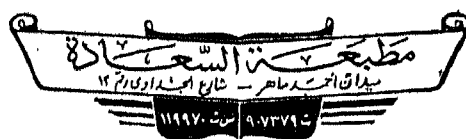 مطبعة السَّعادة
ميدان أحمد ماهر - شارع الجداوى رقم ١٢
ت ٩٠٧٣٧٩ س.ت ١١٩٩٧٠